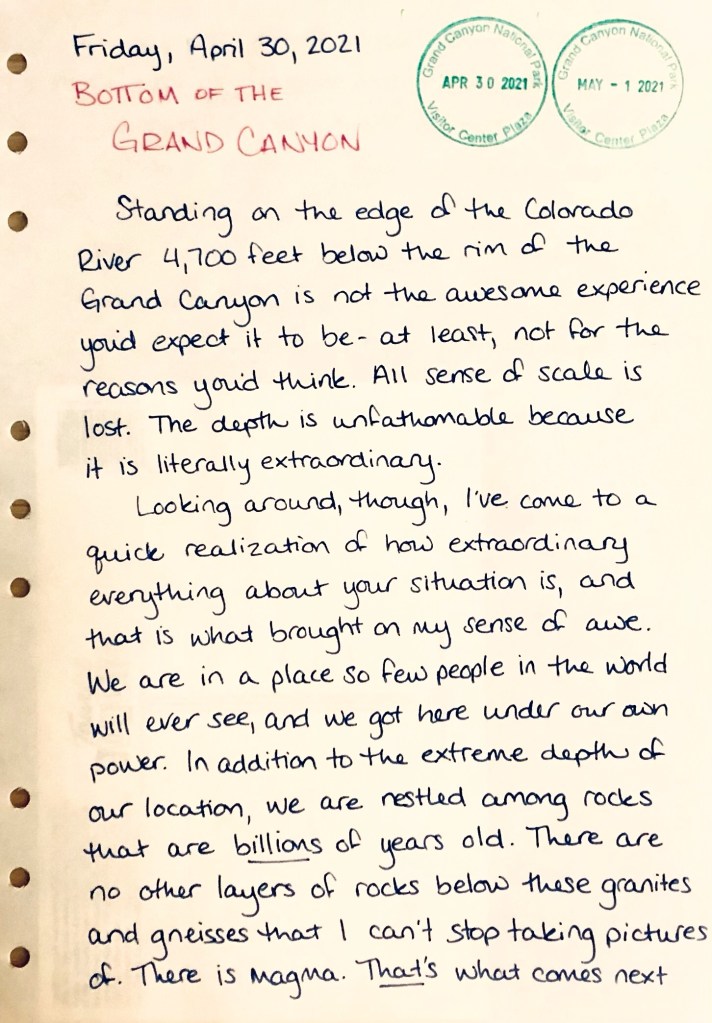 Friday, April 30, 2021
BOTTOM OF THE
GRAND CANYON
Grand Canyon National Park
APR 30 2021
Visitor Center Plaza
Grand Canyon National Park
MAY - 1 2021
Visitor Center Plaza
Standing on the edge of the Colorado
River 4,700 feet below the rim of the
Grand Canyon is not the awesome experience
you'd expect it to be - at least, not for the
reasons you'd think. All sense of scale is
lost. The depth is unfathomable because
it is literally extraordinary.
Looking around, though, I've come to a
quick realization of how extraordinary
everything about your situation is, and
that is what brought on my sense of awe.
We are in a place so few people in the world
will ever see, and we got here under our own
power. In addition to the extreme depth of
our location, we are nestled among rocks
that are billions of years old. There are
no other layers of rocks below these granites
and gneisses that I can't stop taking pictures
of. There is magma. That's what comes next